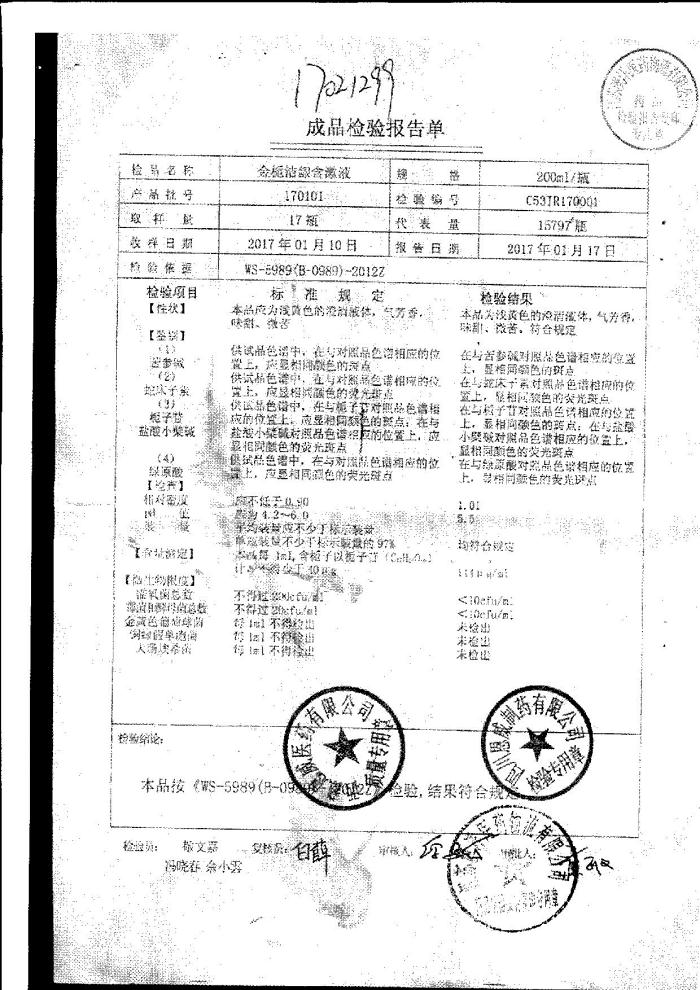 17021299
成品检验报告单
检品名称 金栀洁龈含漱液 规格 200ml/瓶
产品批号 170101 检验编号 C53JR170001
取样量 17瓶 代表量 15797瓶
收样日期 2017年01月10日 报告日期 2017年01月17日
检验依据 WS-5989(B-0989)-2012Z
检验项目 标准规定 检验结果
【性状】 本品应为浅黄色的澄清液体，气芳香， 本品为浅黄色的澄清液体，气芳香，
味甜、微苦 味甜、微苦，符合规定
【鉴别】
(1) 供试品色谱中，在与对照品色谱相应的位 在与苦参碱对照品色谱相应的位置
苦参碱 置上，应显相同颜色的斑点 上，显相同颜色的斑点
(2) 供试品色谱中，在与对照品色谱相应的位 在与蛇床子素对照品色谱相应的位
蛇床子素 置上，应显相同颜色的荧光斑点 置上，显相同颜色的荧光斑点
(3) 供试品色谱中，在与栀子苷对照品色谱相 在与栀子苷对照品色谱相应的位置
栀子苷 应的位置上，应显相同颜色的斑点；在与 上，显相同颜色的斑点；在与盐酸
盐酸小檗碱 盐酸小檗碱对照品色谱相应的位置上，应 小檗碱对照品色谱相应的位置上，
显相同颜色的荧光斑点 显相同颜色的荧光斑点
(4) 供试品色谱中，在与对照品色谱相应的位 在与绿原酸对照品色谱相应的位置
绿原酸 置上，应显相同颜色的荧光斑点 上，显相同颜色的荧光斑点
【检查】
相对密度 应不低于0.90 1.01
pH值 应为4.2~6.0
装量 平均装量应不少于标示装量
单瓶装量不少于标示装量的97% 均符合规定
【含量测定】 每1ml含栀子以栀子苷
不得少于40μg
【微生物限度】
需氧菌总数 不得过200cfu/ml <10cfu/ml
霉菌和酵母菌总数 不得过20cfu/ml <10cfu/ml
金黄色葡萄球菌 每1ml不得检出 未检出
铜绿假单胞菌 每1ml不得检出 未检出
大肠埃希菌 每1ml不得检出 未检出
检验结论：
本品按《WS-5989(B-0989)-2012Z》检验，结果符合规定
恩威医药有限公司
质量专用章
四川恩威制药有限公司
检验专用章
检验员： 敬文嘉 复核员：白薛 审核人： 审批人：
冯晓春 佘小雲